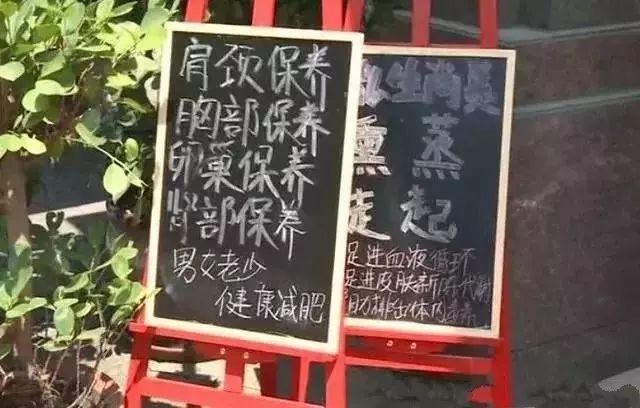 肩颈保养
胸部保养
卵巢保养
肾部保养
男女老少
健康减肥
生尚真
熏蒸
起
足进血液循环
足进皮肤新陈代谢
助力排出体内毒素